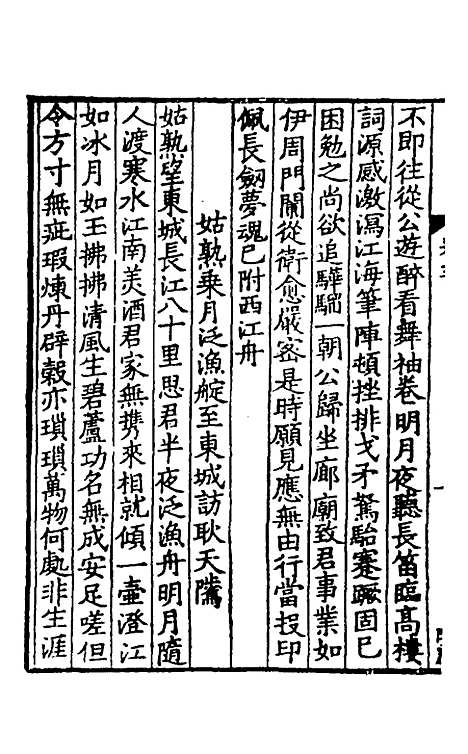 不即往從公遊醉看舞袖卷明月夜聽長笛臨高樓
詞源感激瀉江海筆陣頓挫排戈矛駑駘蹇蹶固已
困勉之尚欲追驊騮一朝公歸坐廊廟致君事業如
伊周門闌從衛愈嚴密是時願見應無由行當投印
佩長劔夢魂已附西江舟
姑熟乗月泛漁艇至東城訪耿天騭
姑熟望東城長江八十里思君半夜泛漁舟明月隨
人渡寒水江南美酒君家無携來相就傾一壷澄江
如冰月如玉拂拂清風生碧蘆功名無成安足嗟但
令方寸無疵瑕煉丹辟穀亦瑣瑣萬物何處非生涯